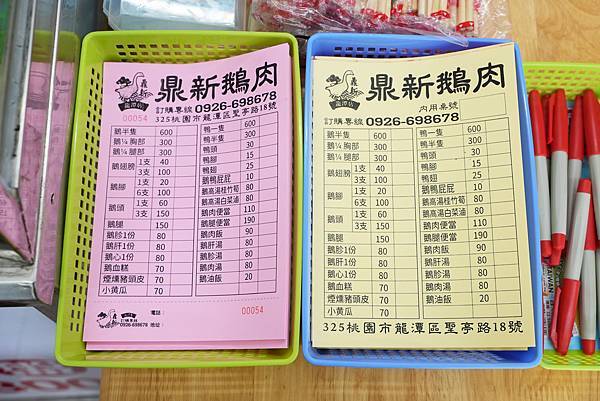 鼎新鵝肉
龍潭店
訂購專線 0926-698678
00054
325桃園市龍潭區聖亭路18號
鵝半隻 600 鴨一隻 600
鵝¼胸部 300 鴨半隻 300
鵝¼腿部 300 鴨頭 30
鵝翅膀 1支 40 鴨腳 15
3支 100 鴨翅 25
鵝腳 1支 20 鵝鴨屁屁 10
6支 100 鵝高湯桂竹筍 80
鵝頭 1支 60 鵝高湯白菜滷 80
3支 150 鵝肉便當 110
鵝腿 150 鵝腿便當 190
鵝胗1份 80 鵝肉飯 90
鵝肝1份 80 鵝肝湯 80
鵝心1份 80 鵝胗湯 80
鵝血糕 70
煙燻豬頭皮 70 鵝油飯 20
小黃瓜 70
訂購專線
0926-698678
電話：
地址：
00054
鼎新鵝肉
龍潭店
內用桌號
訂購專線 0926-698678
鵝半隻 600 鴨一隻 600
鵝¼胸部 300 鴨半隻 300
鵝¼腿部 300 鴨頭 30
鵝翅膀 1支 40 鴨腳 15
3支 100 鴨翅 25
鵝腳 1支 20 鵝鴨屁屁 10
6支 100 鵝高湯桂竹筍 80
鵝頭 1支 60 鵝高湯白菜滷 80
3支 150 鵝肉便當 110
鵝腿 150 鵝腿便當 190
鵝胗1份 80 鵝肉飯 90
鵝肝1份 80 鵝肝湯 80
鵝心1份 80 鵝胗湯 80
鵝血糕 70
煙燻豬頭皮 70 鵝油飯 20
小黃瓜 70
325桃園市龍潭區聖亭路18號